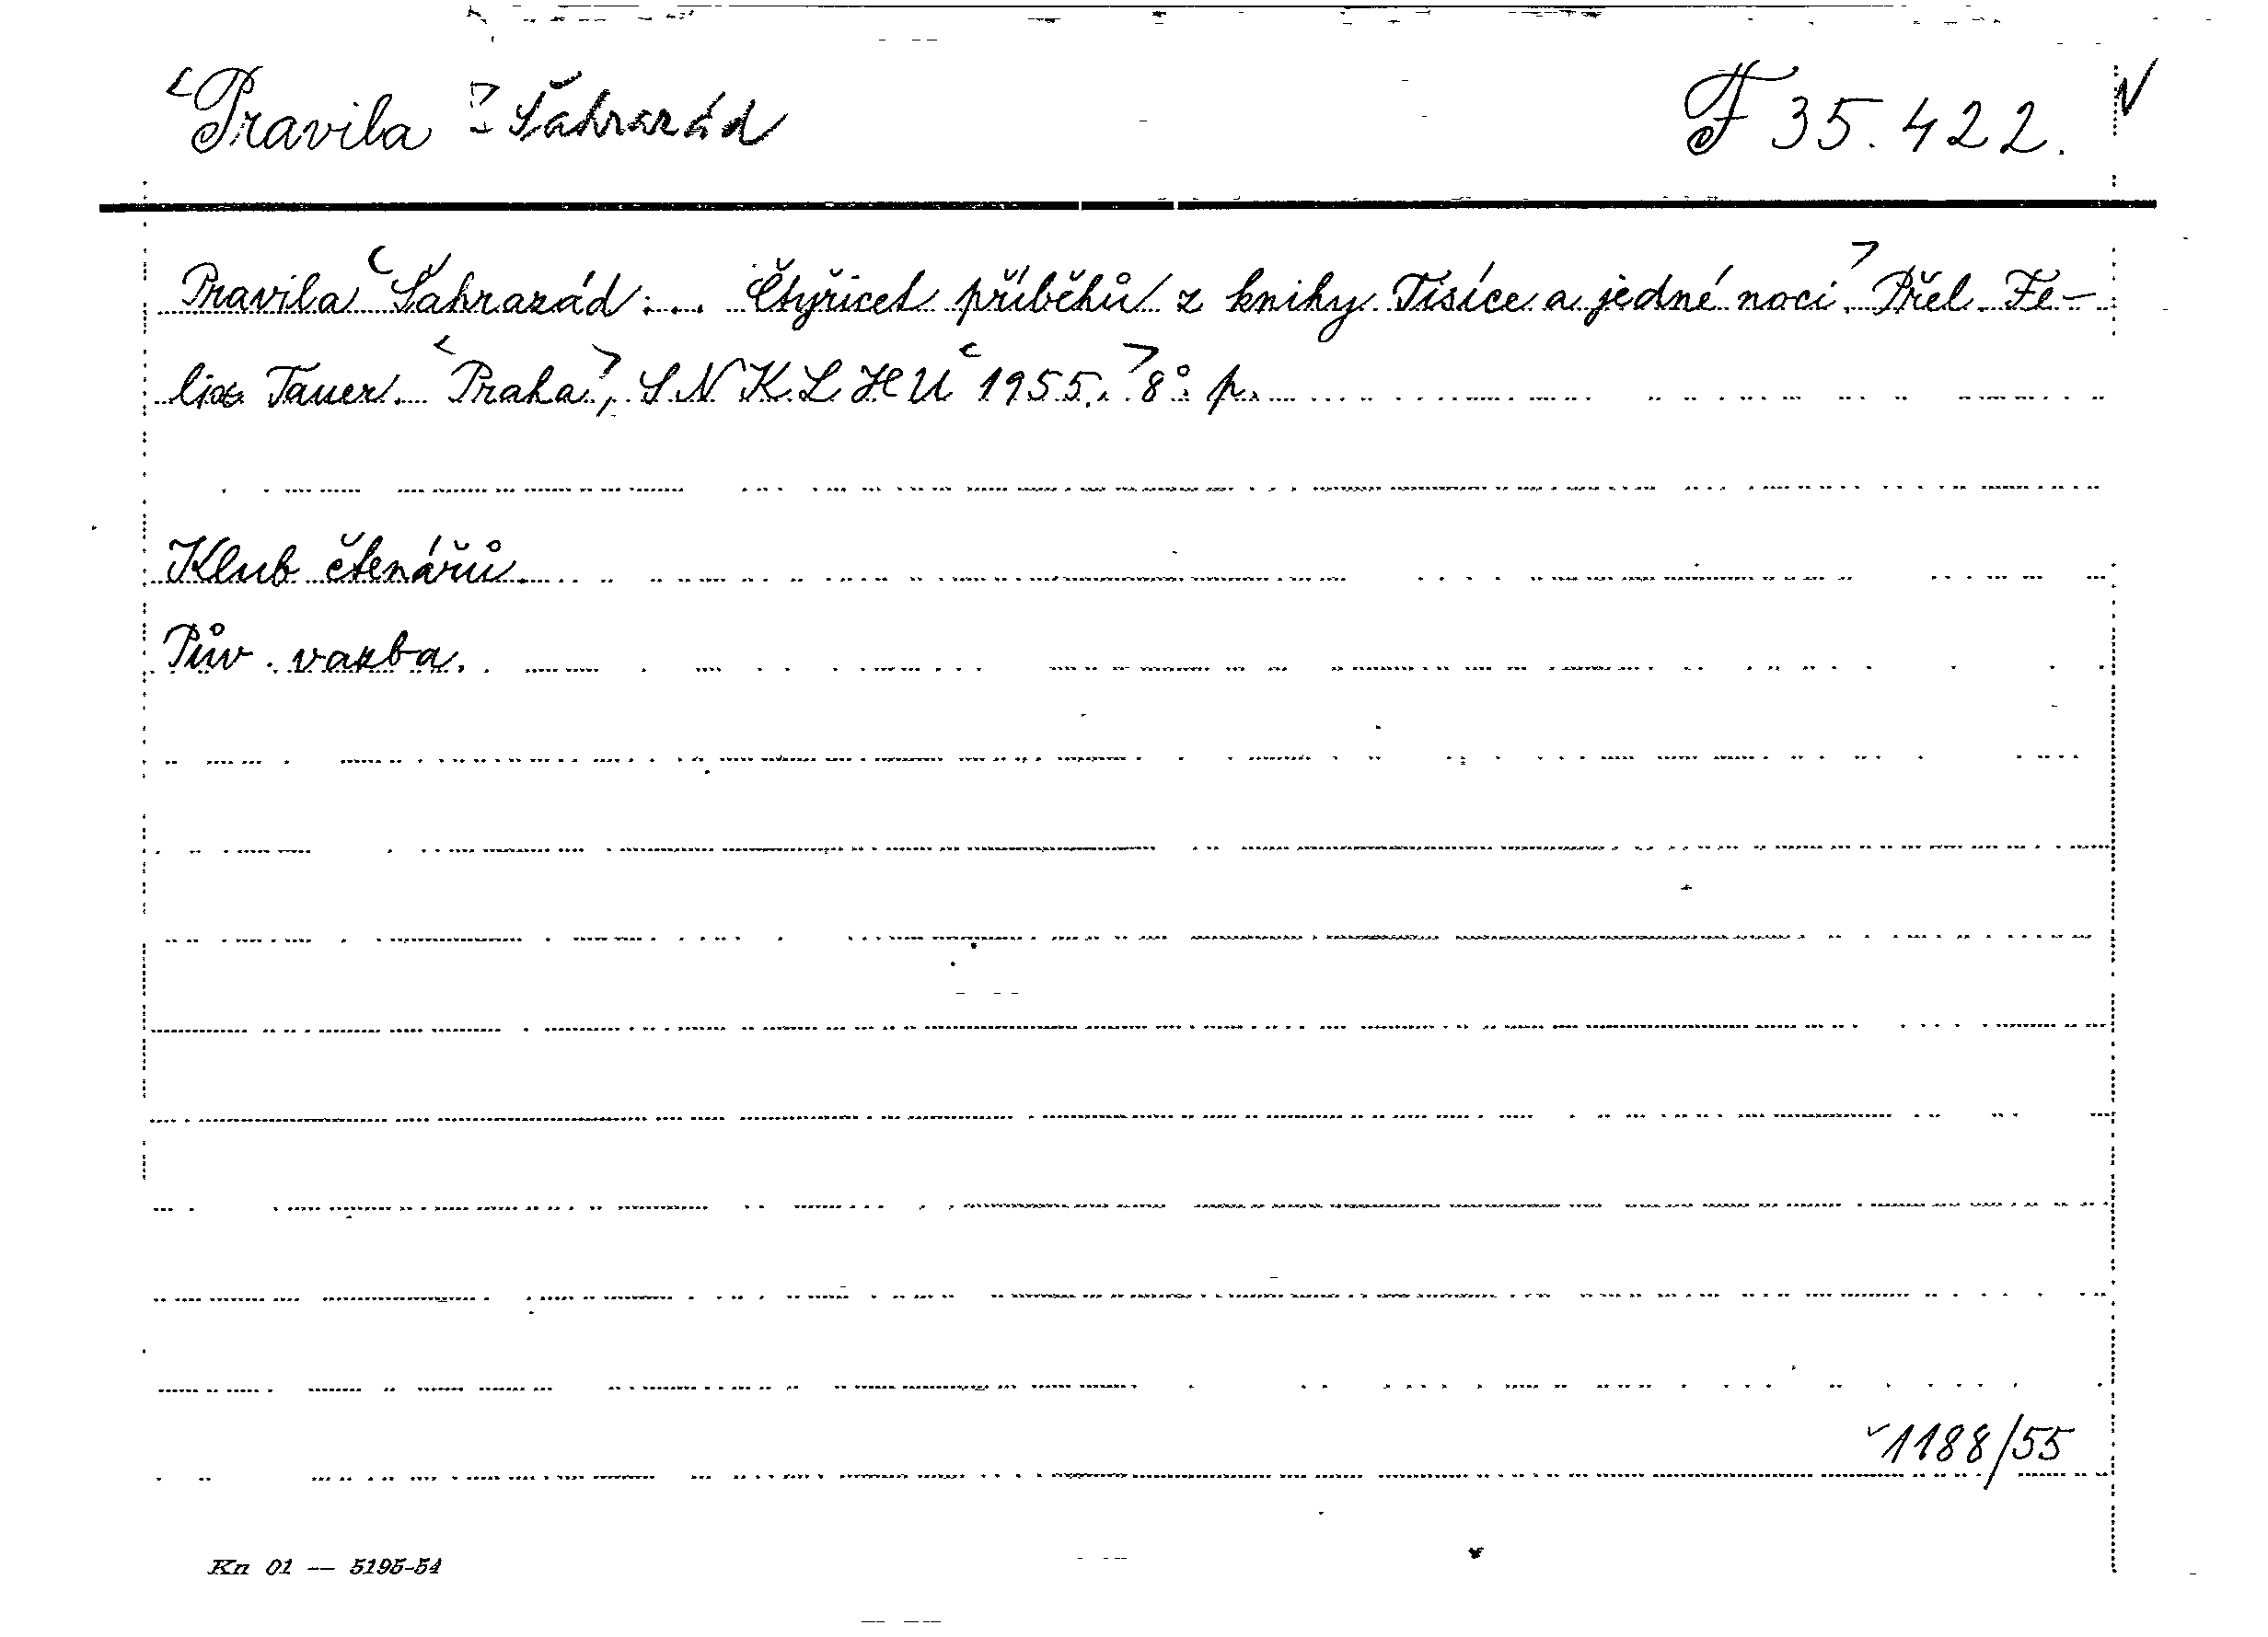 Pravila : Šahrazád F 35.422.
Pravila Šahrazád: .. Čtyřicet příběhů z knihy Tisíce a jedné noci. Přel. Fe-
lix Tauer. Praha, SNKLHU 1955. 8° p.
Klub čtenářů.
Pův. vazba.
1188/55
Kn 01 — 5195-54